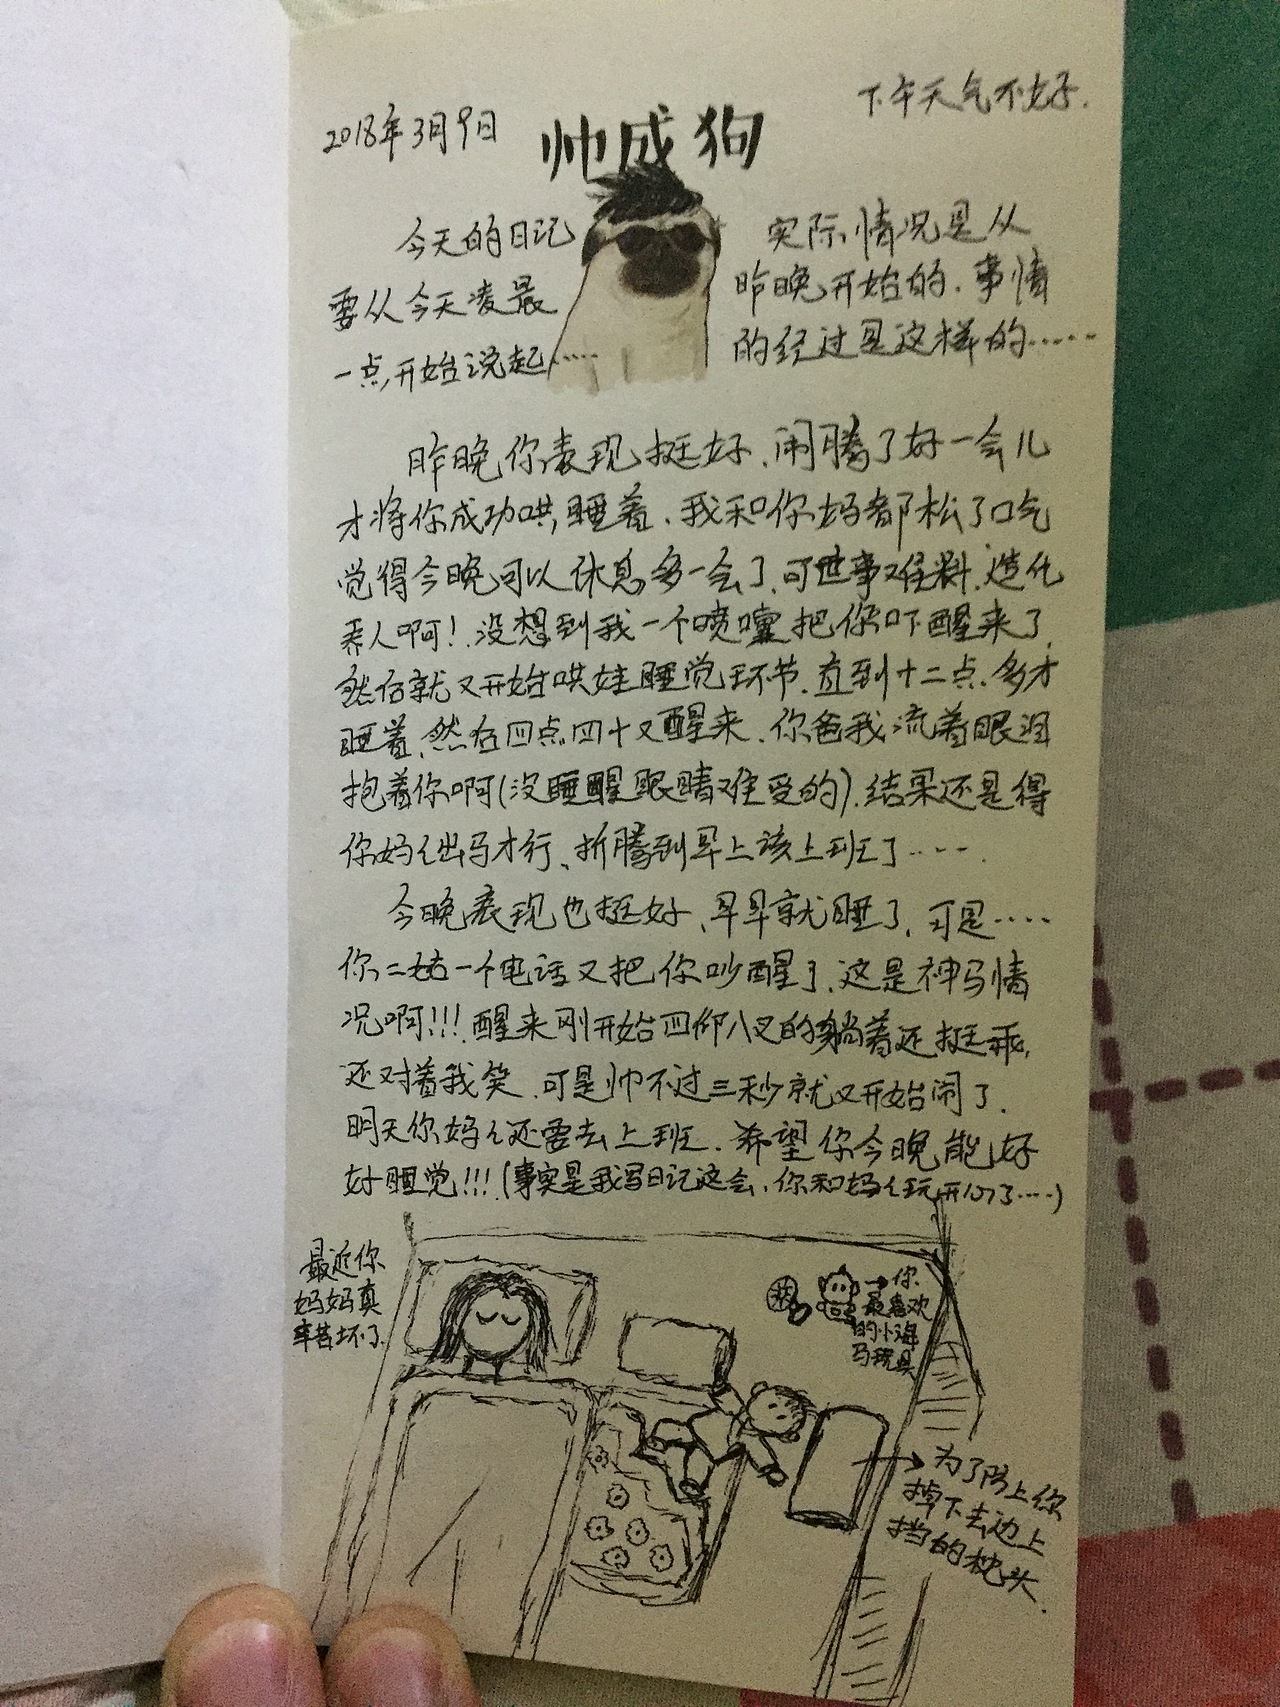 下午天气不好.
2018年3月9日
帅成狗
今天的日记
要从今天凌晨
一点,开始说起……
实际情况是从
昨晚开始的、事情
的经过是这样的……
昨晚你表现挺好、闹腾了好一会儿
才将你成功哄睡着、我和你妈都松了口气
觉得今晚可以休息多一会了、可世事难料、造化
弄人啊!没想到我一个喷嚏把你吓醒来了、
然后就又开始哄娃睡觉环节、直到十二点多才
睡着、然后四点四十又醒来、你爸我流着眼泪
抱着你啊(没睡醒眼睛难受的)、结果还是得
你妈妈出马才行、折腾到早上该上班了……
今晚表现也挺好、早早就睡了、可是……
你二姑一个电话又把你吵醒了、这是神马情
况啊!!!醒来刚开始四仰八叉的躺着还挺乖,
还对着我笑、可是帅不过三秒就又开始闹了、
明天你妈妈还要去上班、希望你今晚能好
好睡觉!!!(事实是我写日记这会、你和妈妈玩开心了……)
最近你
妈妈真
辛苦坏了、
→你
最喜欢
的小海
马玩具
→为了防止你
掉下去边上
挡的枕头.